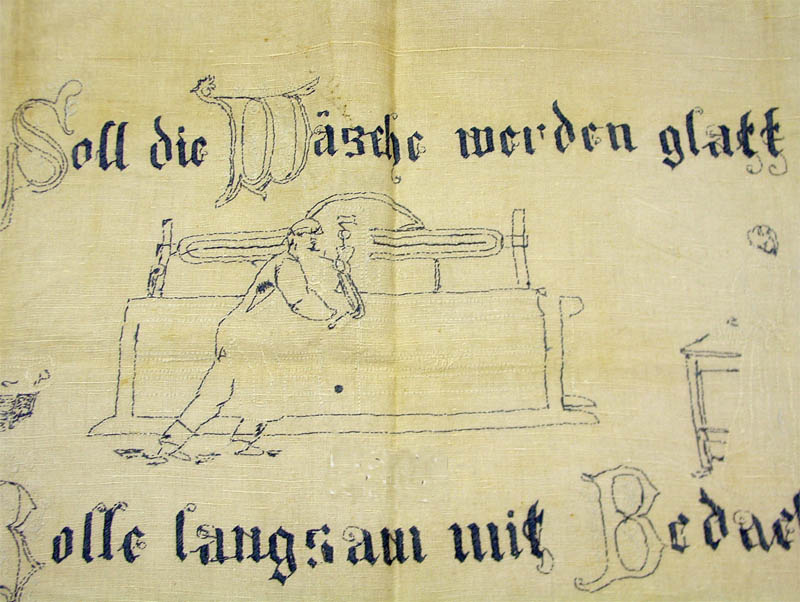 Soll die Wäsche werden glatt
Rolle langsam mit Bedach